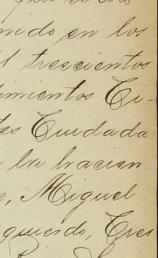 ando en los
l trescientos
imientos Ci-
tes Cuidada
la hacien
o, Miguel
quierdo, Tres